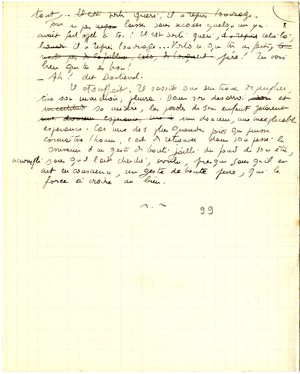 tout... Il est sorti guéri, il a repris l'ouvrage.
Tu n'as pas laissé sans secours quelqu'un qui
avait fait appel à toi! Il est sorti guéri,
il a repris l'ouvrage... Voilà ce que tu as fait,
père! Tu vois
bien que tu es bon!
— Ah! dit Doutreval.
Il étouffait. Il s'assit sur un tronc de peuplier,
tira son mouchoir, pleura. Dans son désarroi
sa misère, les paroles de son enfant
une douceur, une inexplicable
espérance. Car une des plus grandes joies que puisse
connaître l'homme, c'est de retrouver dans son passé le
souvenir d'un geste de bonté jailli du fond de son être,
accompli sans qu'il l'ait cherché, voulu, presque sans qu'il en
ait eu conscience, un geste de bonté pure, qui le
force à croire au bien.
99